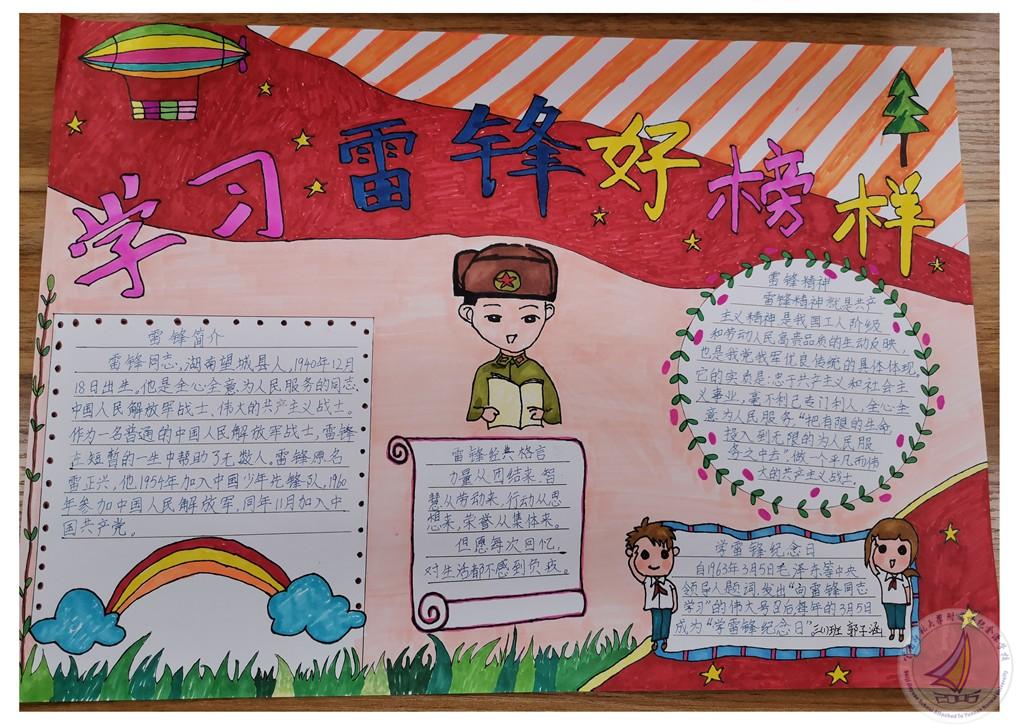 学习雷锋好榜样
雷锋简介
雷锋同志,湖南望城县人,1940年12月
18日出生。他是全心全意为人民服务的同志.
中国人民解放军战士、伟大的共产主义战士。
作为一名普通的中国人民解放军战士,雷锋
在短暂的一生中帮助了无数人。雷锋原名
雷正兴,他1954年加入中国少年先锋队,1960
年参加中国人民解放军,同年11月加入中
国共产党。
雷锋经典格言
力量从团结来,智
慧从劳动来,行动从思
想来,荣誉从集体来。
但愿每次回忆,
对生活都不感到负疚。
雷锋精神
雷锋精神就是共产
主义精神是我国工人阶级
和劳动人民高贵品质的生动反映,
也是我党我军优良传统的具体体现.
它的实质是:忠于共产主义和社会主
义事业,毫不利己专门利人,全心全
意为人民服务“把有限的生命
投入到无限的为人民服
务之中去”做一个平凡而伟
大的共产主义战士.
学雷锋纪念日
自1963年3月5日毛泽东等中央
领导人题词,发出“向雷锋同志
学习”的伟大号召后每年的3月5日
成为“学雷锋纪念日”
班 郭子涵